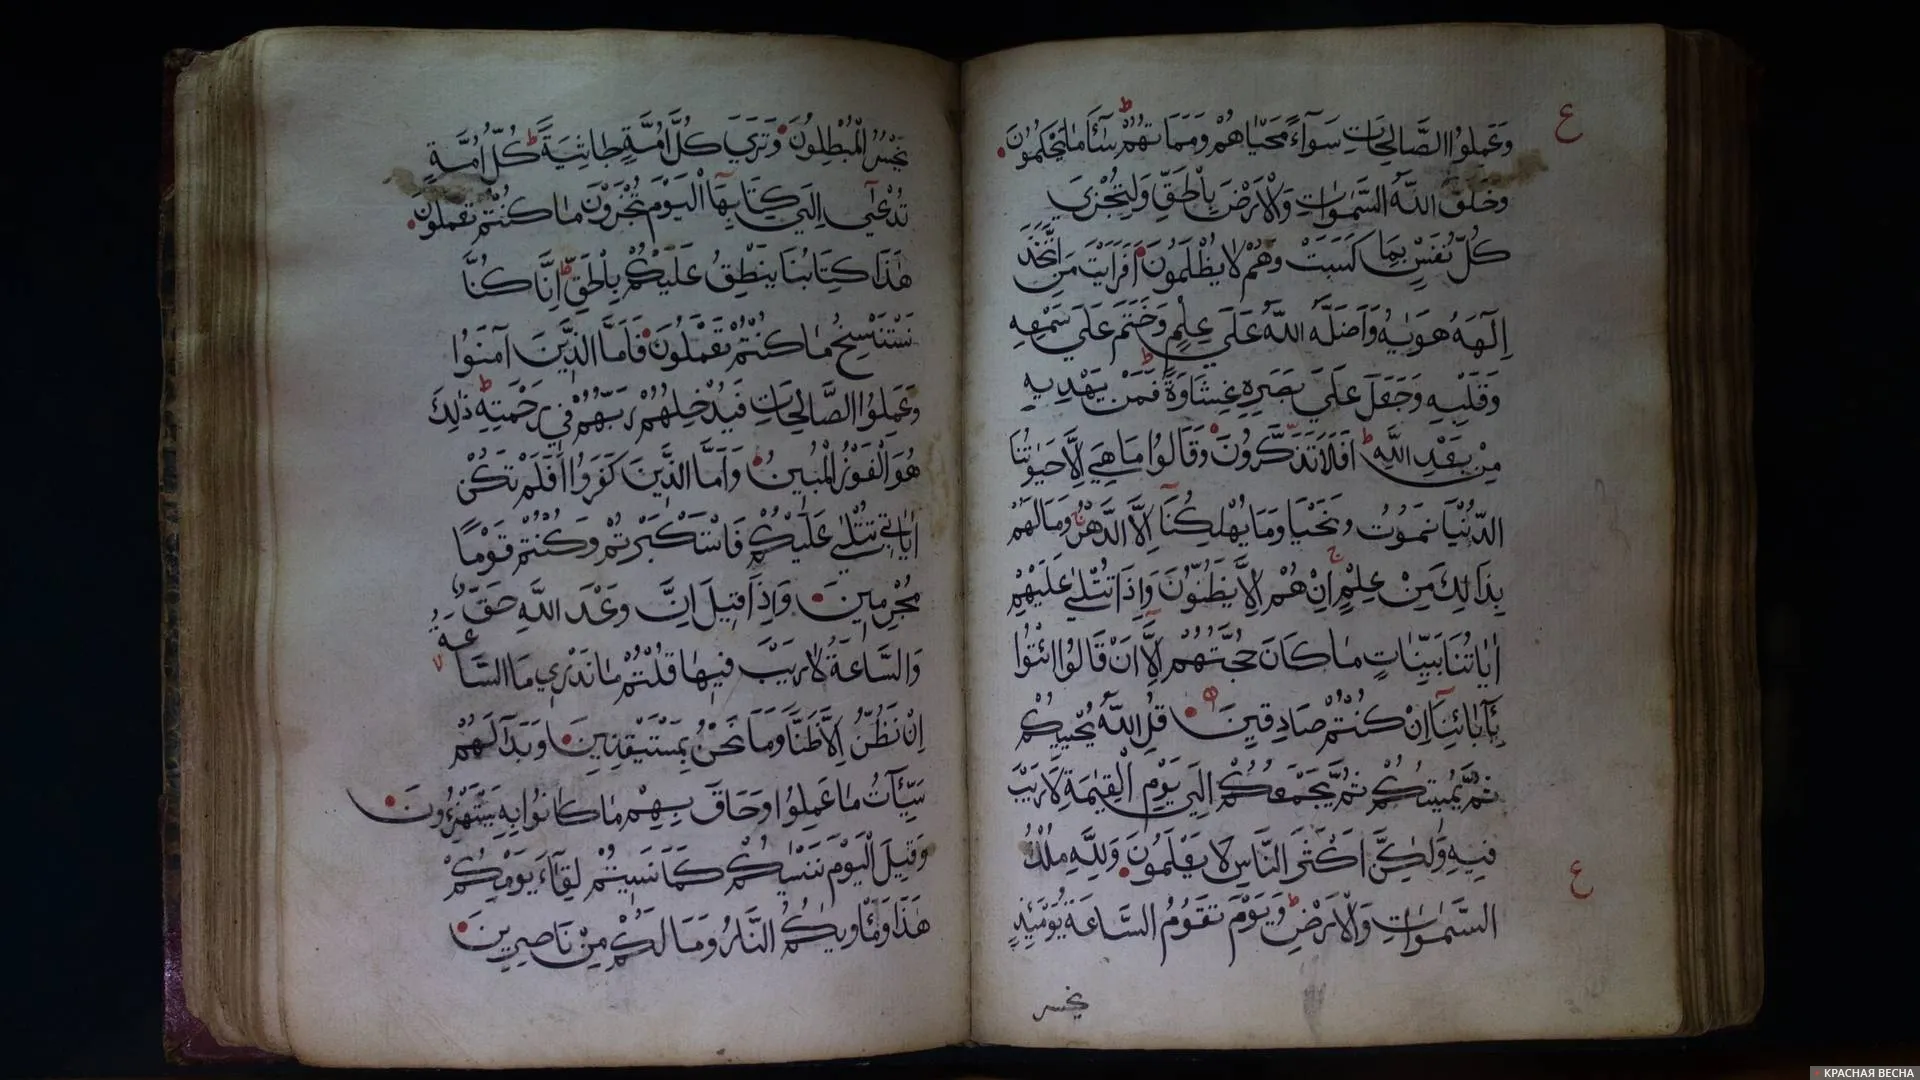 وَعَمِلُوا الصَّالِحَاتِ سَوَآءً مَحْيَاهُمْ وَمَمَاتُهُمْ سَآءَ مَا يَحْكُمُونَ
وَخَلَقَ اللَّهُ السَّمٰوَاتِ وَالْاَرْضَ بِالْحَقِّ وَلِتُجْزٰي
كُلُّ نَفْسٍ بِمَا كَسَبَتْ وَهُمْ لَا يُظْلَمُونَ اَفَرَاَيْتَ مَنِ اتَّخَذَ
اِلٰهَهُ هَوٰيهُ وَاَضَلَّهُ اللَّهُ عَلَي عِلْمٍ وَخَتَمَ عَلَي سَمْعِهِ
وَقَلْبِهِ وَجَعَلَ عَلَي بَصَرِهِ غِشَاوَةً فَمَنْ يَهْدِيهِ
مِنْ بَعْدِ اللَّهِ اَفَلَا تَذَكَّرُونَ وَقَالُوا مَا هِيَ اِلَّا حَيٰوتُنَا
الدُّنْيَا نَمُوتُ وَنَحْيَا وَمَا يُهْلِكُنَآ اِلَّا الدَّهْرُ وَمَا لَهُمْ
بِذٰلِكَ مِنْ عِلْمٍ اِنْ هُمْ اِلَّا يَظُنُّونَ وَاِذَا تُتْلٰي عَلَيْهِمْ
اٰيَاتُنَا بَيِّنَاتٍ مَا كَانَ حُجَّتَهُمْ اِلَّآ اَنْ قَالُوا ائْتُوا
بِاٰبَائِنَآ اِنْ كُنْتُمْ صَادِقِينَ قُلِ اللَّهُ يُحْيِيكُمْ
ثُمَّ يُمِيتُكُمْ ثُمَّ يَجْمَعُكُمْ اِلَي يَوْمِ الْقِيٰمَةِ لَا رَيْبَ
فِيهِ وَلٰكِنَّ اَكْثَرَ النَّاسِ لَا يَعْلَمُونَ وَلِلَّهِ مُلْكُ
السَّمٰوَاتِ وَالْاَرْضِ وَيَوْمَ تَقُومُ السَّاعَةُ يَوْمَئِذٍ
يخسر
ع
ع
يَخْسَرُ الْمُبْطِلُونَ وَتَرَي كُلَّ اُمَّةٍ جَاثِيَةً كُلُّ اُمَّةٍ
تُدْعٰٓي اِلَي كِتَابِهَا الْيَوْمَ تُجْزَوْنَ مَا كُنْتُمْ تَعْمَلُونَ
هٰذَا كِتَابُنَا يَنْطِقُ عَلَيْكُمْ بِالْحَقِّ اِنَّا كُنَّا
نَسْتَنْسِخُ مَا كُنْتُمْ تَعْمَلُونَ فَاَمَّا الَّذِينَ اٰمَنُوا
وَعَمِلُوا الصَّالِحَاتِ فَيُدْخِلُهُمْ رَبُّهُمْ فِي رَحْمَتِهِ ذٰلِكَ
هُوَ الْفَوْزُ الْمُبِينُ وَاَمَّا الَّذِينَ كَفَرُوا اَفَلَمْ تَكُنْ
اٰيَاتِي تُتْلٰي عَلَيْكُمْ فَاسْتَكْبَرْتُمْ وَكُنْتُمْ قَوْمًا
مُجْرِمِينَ وَاِذَا قِيلَ اِنَّ وَعْدَ اللَّهِ حَقٌّ
وَالسَّاعَةُ لَا رَيْبَ فِيهَا قُلْتُمْ مَا نَدْرِي مَا السَّاعَةُ
اِنْ نَظُنُّ اِلَّا ظَنًّا وَمَا نَحْنُ بِمُسْتَيْقِنِينَ وَبَدَا لَهُمْ
سَيِّآتُ مَا عَمِلُوا وَحَاقَ بِهِمْ مَا كَانُوا بِهِ يَسْتَهْزِؤُنَ
وَقِيلَ الْيَوْمَ نَنْسٰيكُمْ كَمَا نَسِيتُمْ لِقَآءَ يَوْمِكُمْ
هٰذَا وَمَاْوٰيكُمُ النَّارُ وَمَا لَكُمْ مِنْ نَاصِرِينَ
КРАСНАЯ ВЕСНА